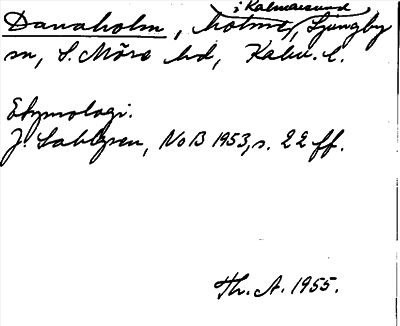 i Kalmarsund
Danaholm, holme, Ljungby
sn, S. Möre hd, Kalm. l.
Etymologi.
J. Sahlgren, NoB 1953, s. 22 ff.
Th. A. 1955.